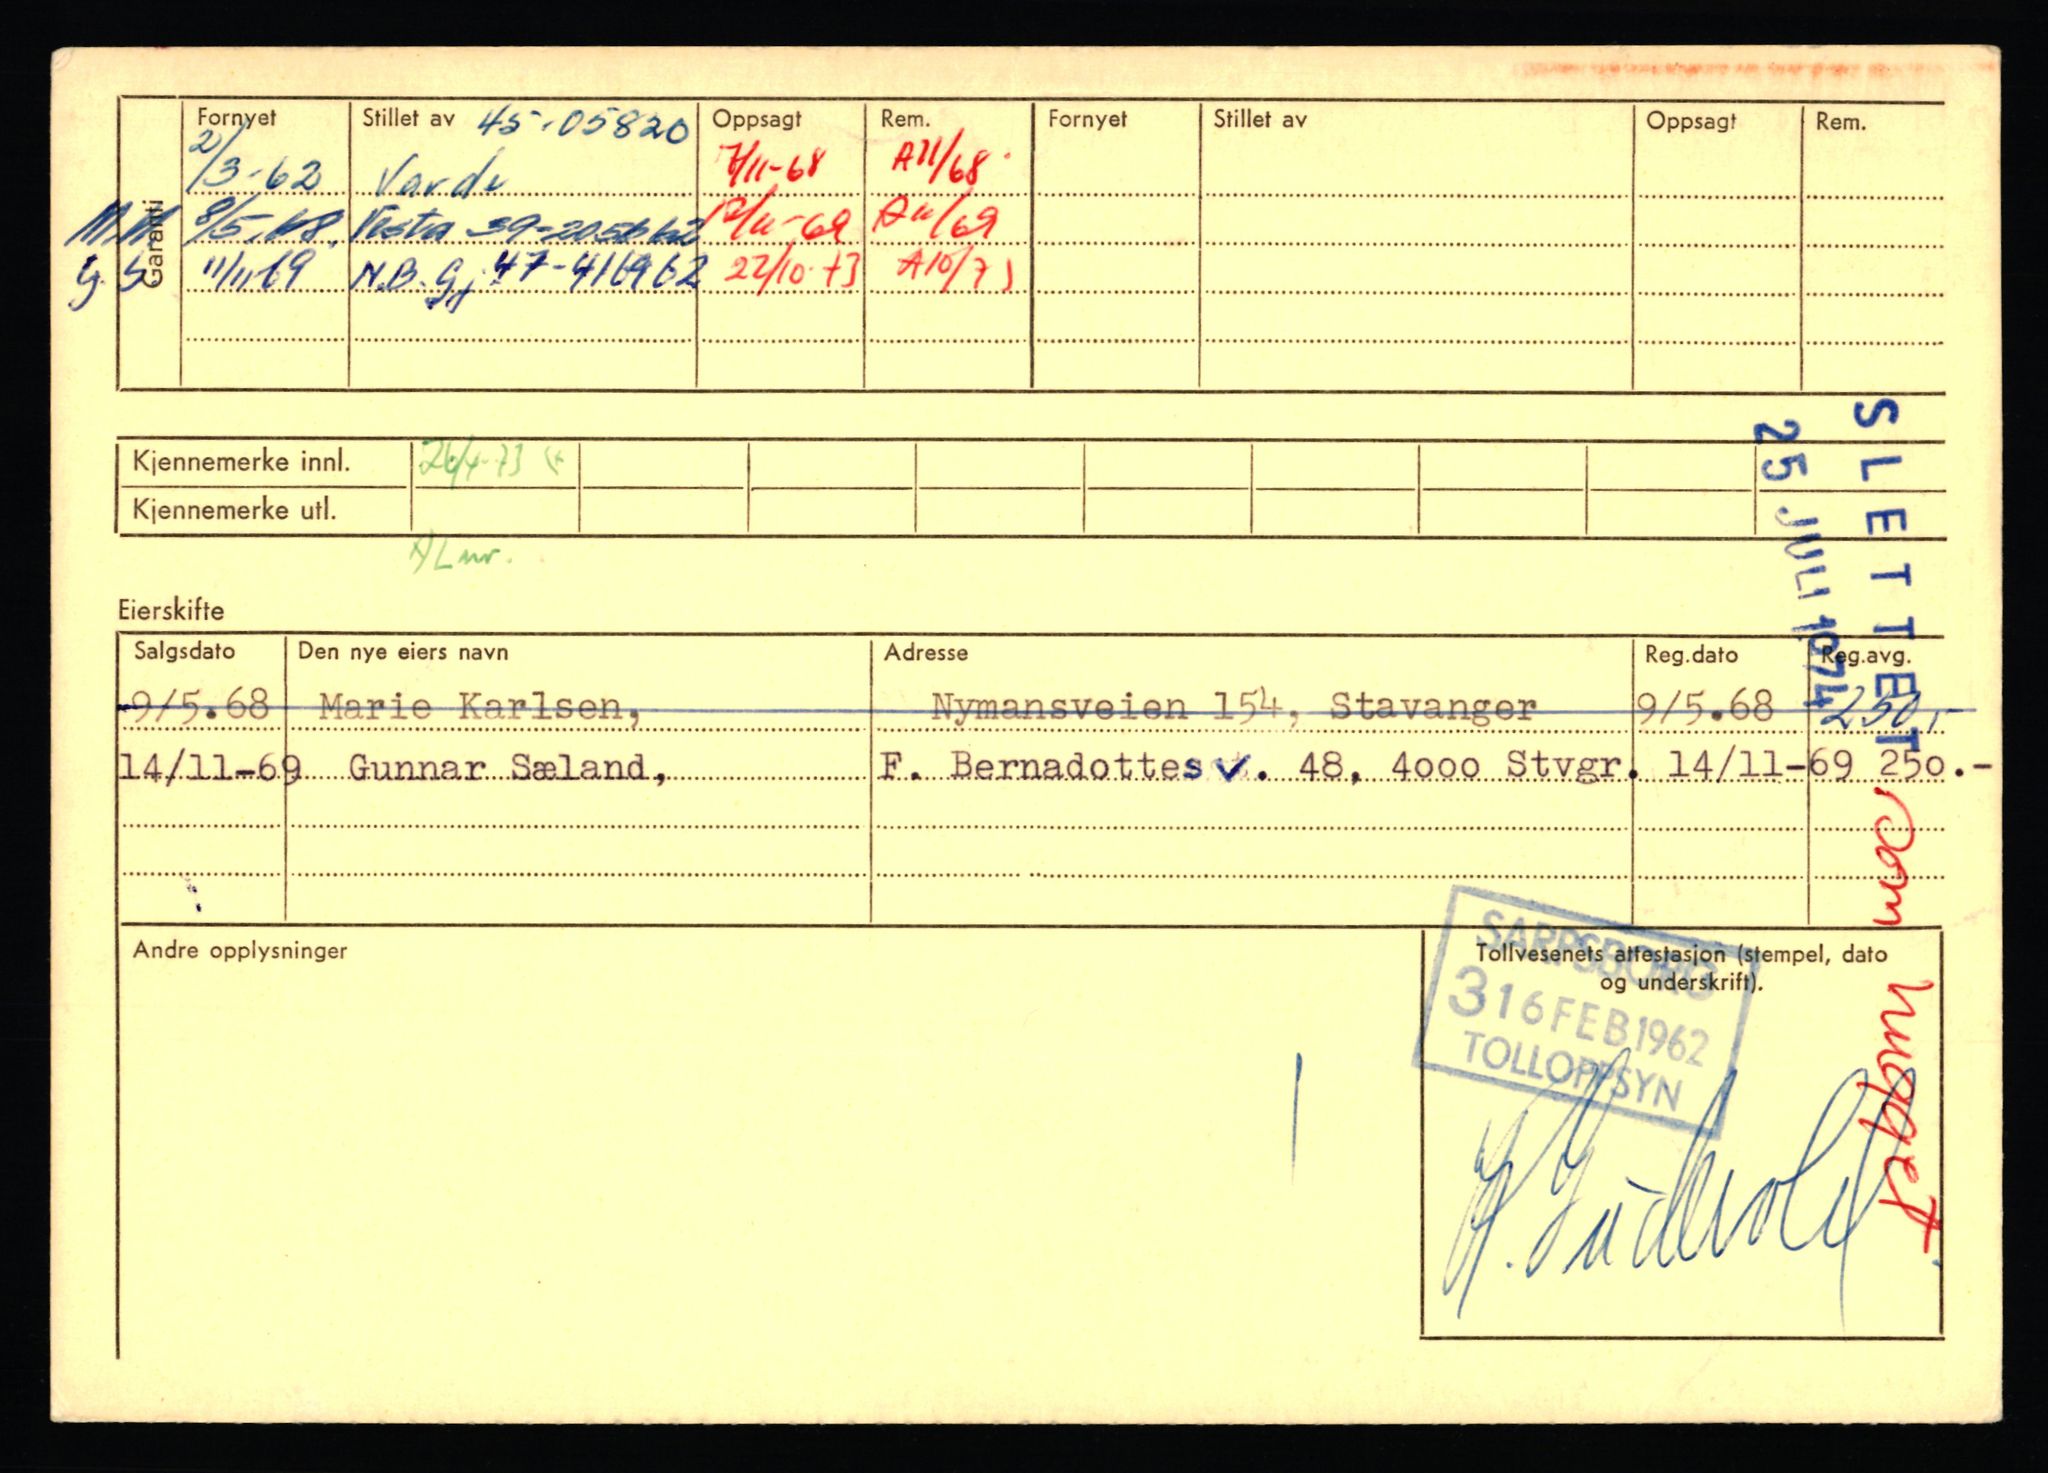 Fornyet Stillet av 45-05820 Oppsagt Rem. Fornyet Stillet av Oppsagt Rem.
2/3-62 Varde 7/11-68 A11/68
Garanti
M.M 8/5.68. Vesta 59-205662 12/11-69 A11/69
G.S 11/11 69 N.B.Gj. 47-416962 22/10-73 A10/73
Kjennemerke innl. 26/4-73
Kjennemerke utl.
SLETTET
25 JULI 1974
Eierskifte
Salgsdato Den nye eiers navn Adresse Reg.dato Reg.avg.
9/5.68 Marie Karlsen, Nymansveien 154, Stavanger 9/5.68 250,-
14/11-69 Gunnar Sæland, F. Bernadottes v. 48, 4000 Stvgr. 14/11-69 250.-
som vrapget
Andre opplysninger
Tollvesenets attestasjon (stempel, dato
og underskrift).
SARPSBORG
3 16 FEB 1962
TOLLOPPSYN